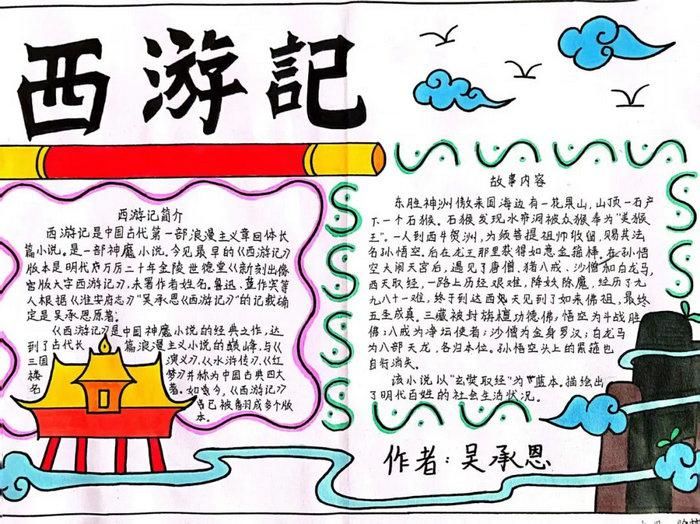 西游記
西游记简介
西游记是中国古代第一部浪漫主义章回体长
篇小说。是一部神魔小说。今见最早的《西游记》
版本是明代万历二十年金陵世德堂《新刻出像
官版大字西游记》,未署作者姓名。鲁迅、董作宾等
人根据《淮安府志》"吴承恩《西游记》"的记载确
定是吴承恩原著。
《西游记》是中国神魔小说的经典之作,达
到了古代长篇浪漫主义小说的巅峰,与《
三国演义》、《水浒传》、《红
楼梦》并称为中国古典四大
名著。如今,《西游记》
已被翻成多个版
本。
故事内容
东胜神洲傲来国海边有一花果山,山顶一石产
下一个石猴。石猴发现水帘洞被众猴奉为"美猴
王"。一人到西牛贺洲,为须菩提祖师收留,赐其法
名孙悟空,后在龙王那里获得如意金箍棒,在孙悟
空大闹天宫后,遇见了唐僧,猪八戒、沙僧和白龙马,
西天取经,一路上历经艰难,降妖除魔,经历了九
九八十一难,终于到达西天见到了如来佛祖,最终
五圣成真,三藏被封旃檀功德佛;悟空为斗战胜
佛;八戒为净坛使者;沙僧为金身罗汉;白龙马
为八部天龙,各归本位。孙悟空头上的紧箍也
自行消失。
该小说以"玄奘取经"为蓝本。描绘出
了明代百姓的社会生活状况。
作者:吴承恩